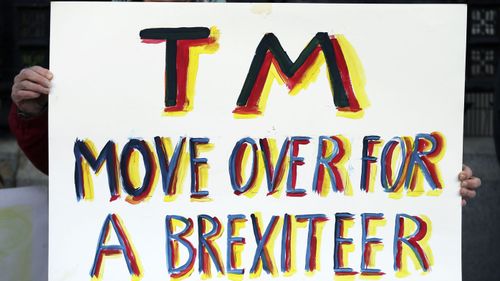 TM
MOVE OVER FOR
A BREXITEER